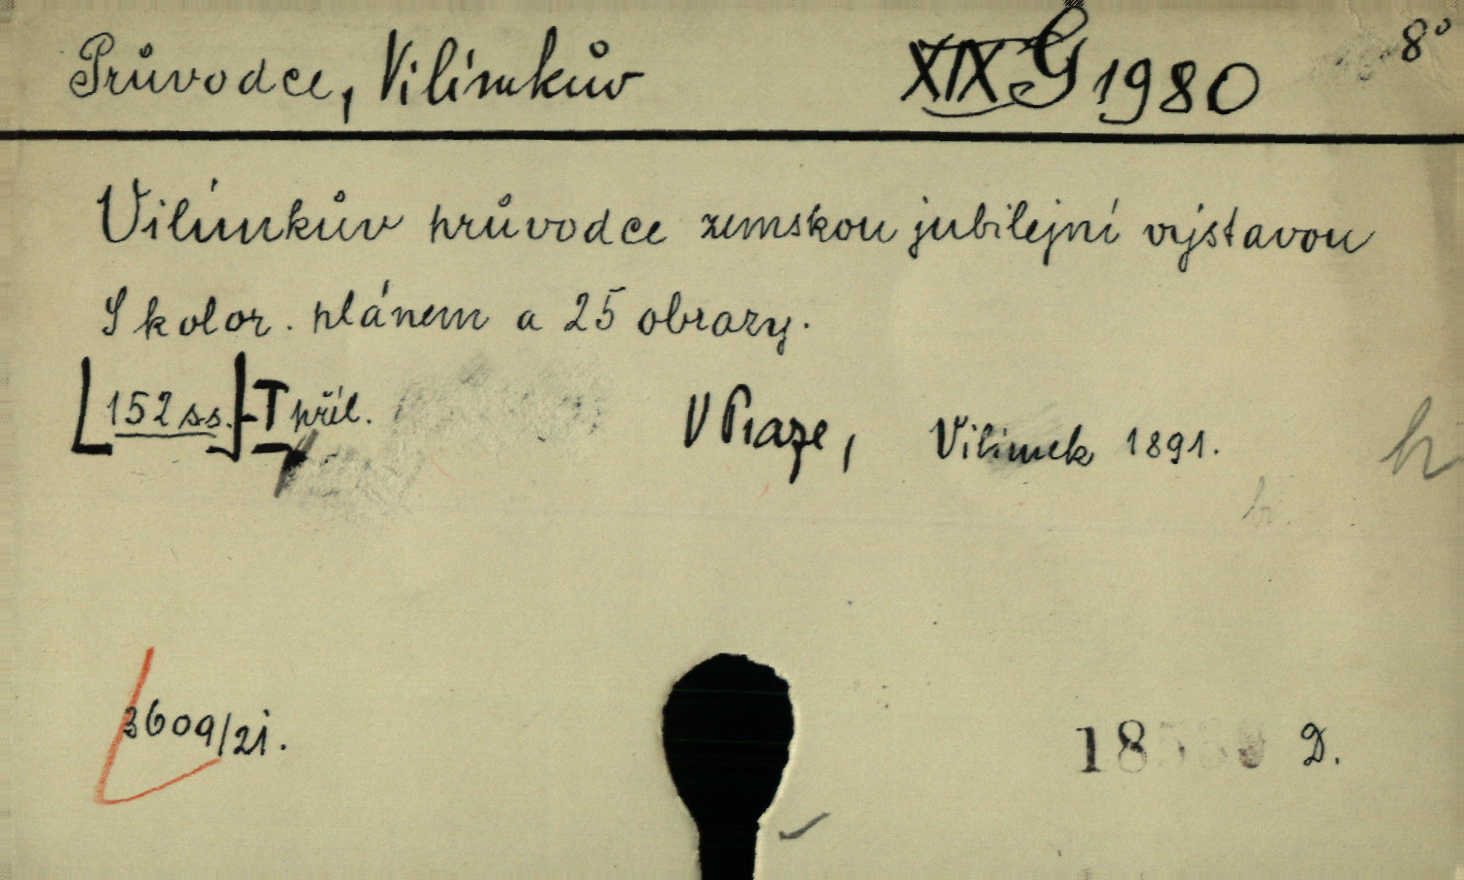 Průvodce, Vilímkův XIX G 1980 8°
Vilímkův průvodce zemskou jubilejní výstavou
S kolor. plánem a 25 obrazy.
[152 ss.]-I příl. V Praze, Vilímek 1891.
3609/21. D.